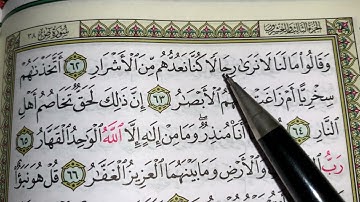 سورة ص ٣٨
الجزء الثالث والعشرون
وَقَالُوا۟ مَا لَنَا لَا نَرَىٰ رِجَالًا كُنَّا نَعُدُّهُم مِّنَ ٱلْأَشْرَارِ ٦٢ أَتَّخَذْنَٰهُمْ
سِخْرِيًّا أَمْ زَاغَتْ ٱلْأَبْصَٰرُ ٦٣ إِنَّ ذَٰلِكَ لَحَقٌّ تَخَاصُمُ أَهْلِ
ٱلنَّارِ ٦٤ مُنذِرٌ ۖ وَمَا مِنْ إِلَٰهٍ إِلَّا ٱللَّهُ ٱلْوَٰحِدُ ٱلْقَهَّارُ ٦٥
رَبُّ وَٱلْأَرْضِ وَمَا بَيْنَهُمَا ٱلْعَزِيزُ ٱلْغَفَّٰرُ ٦٦ قُلْ هُوَ نَبَؤٌا۟